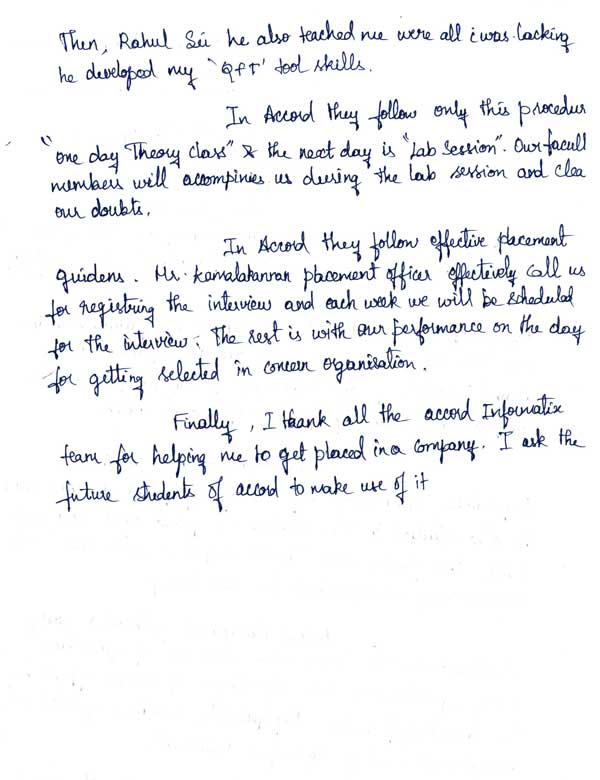 Then, Rahul Sir he also teached me were all i was lacking
he developed my 'QFT' tool skills.
In Accord they follow only this procedur
"one day Theory class" & the next day is "Lab Session". Our facult
members will accompinies us during the lab session and clea
our doubts.
In Accord they follow effective placement
guidens. Mr. Kamalakannan placement officer effectively call us
for registring the interview and each week we will be scheduled
for the interview. The rest is with our performance on the day
for getting selected in concern organisation.
Finally, I thank all the accord Informatix
team for helping me to get placed in a company. I ask the
future students of accord to make use of it